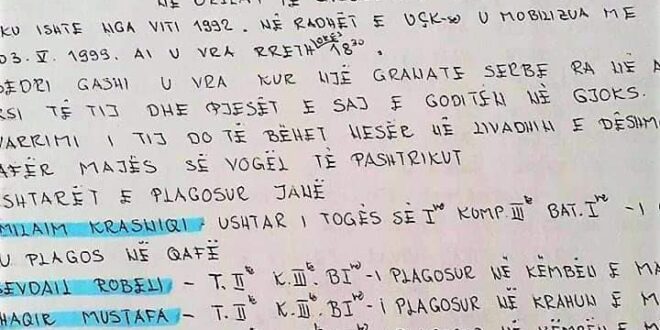 KU ISHTE NGA VITI 1992. NË RADHËT E UÇK-së U MOBILIZUA ME
03.V.1999. AI U VRA RRETH ORËS 18 30.
BEDRI GASHI U VRA KUR NJË GRANATË SERBE RA NË A
RSI TË TIJ DHE PJESËT E SAJ E GODITËN NË GJOKS.
VARRIMI I TIJ DO TË BËHET NESËR NË LIVADHIN E DËSHM
AFËR MAJËS SË VOGËL TË PASHTRIKUT
USHTARËT E PLAGOSUR JANË
MILAIM KRASNIQI - USHTAR I TOGËS SË I-rë KOMP. III-të BAT. I-rë - I
U PLAGOS NË QAFË
SEVDAIL ROBELI - T. II-të K. III-të. B I-rë - I PLAGOSUR NË KËMBËN E MA
SHAQIR MUSTAFA - T. II-të K. III-të. B I-rë - I PLAGOSUR NË KRAHUN E M